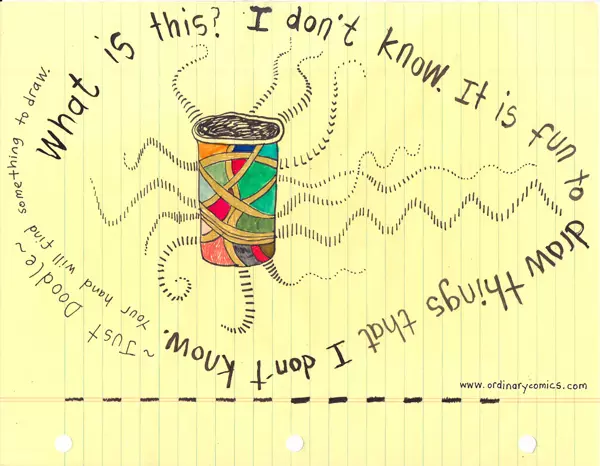 What is this? I don't know. It is fun to draw things that I don't know.
~Just Doodle~
Your hand will find something to draw.
www.ordinarycomics.com